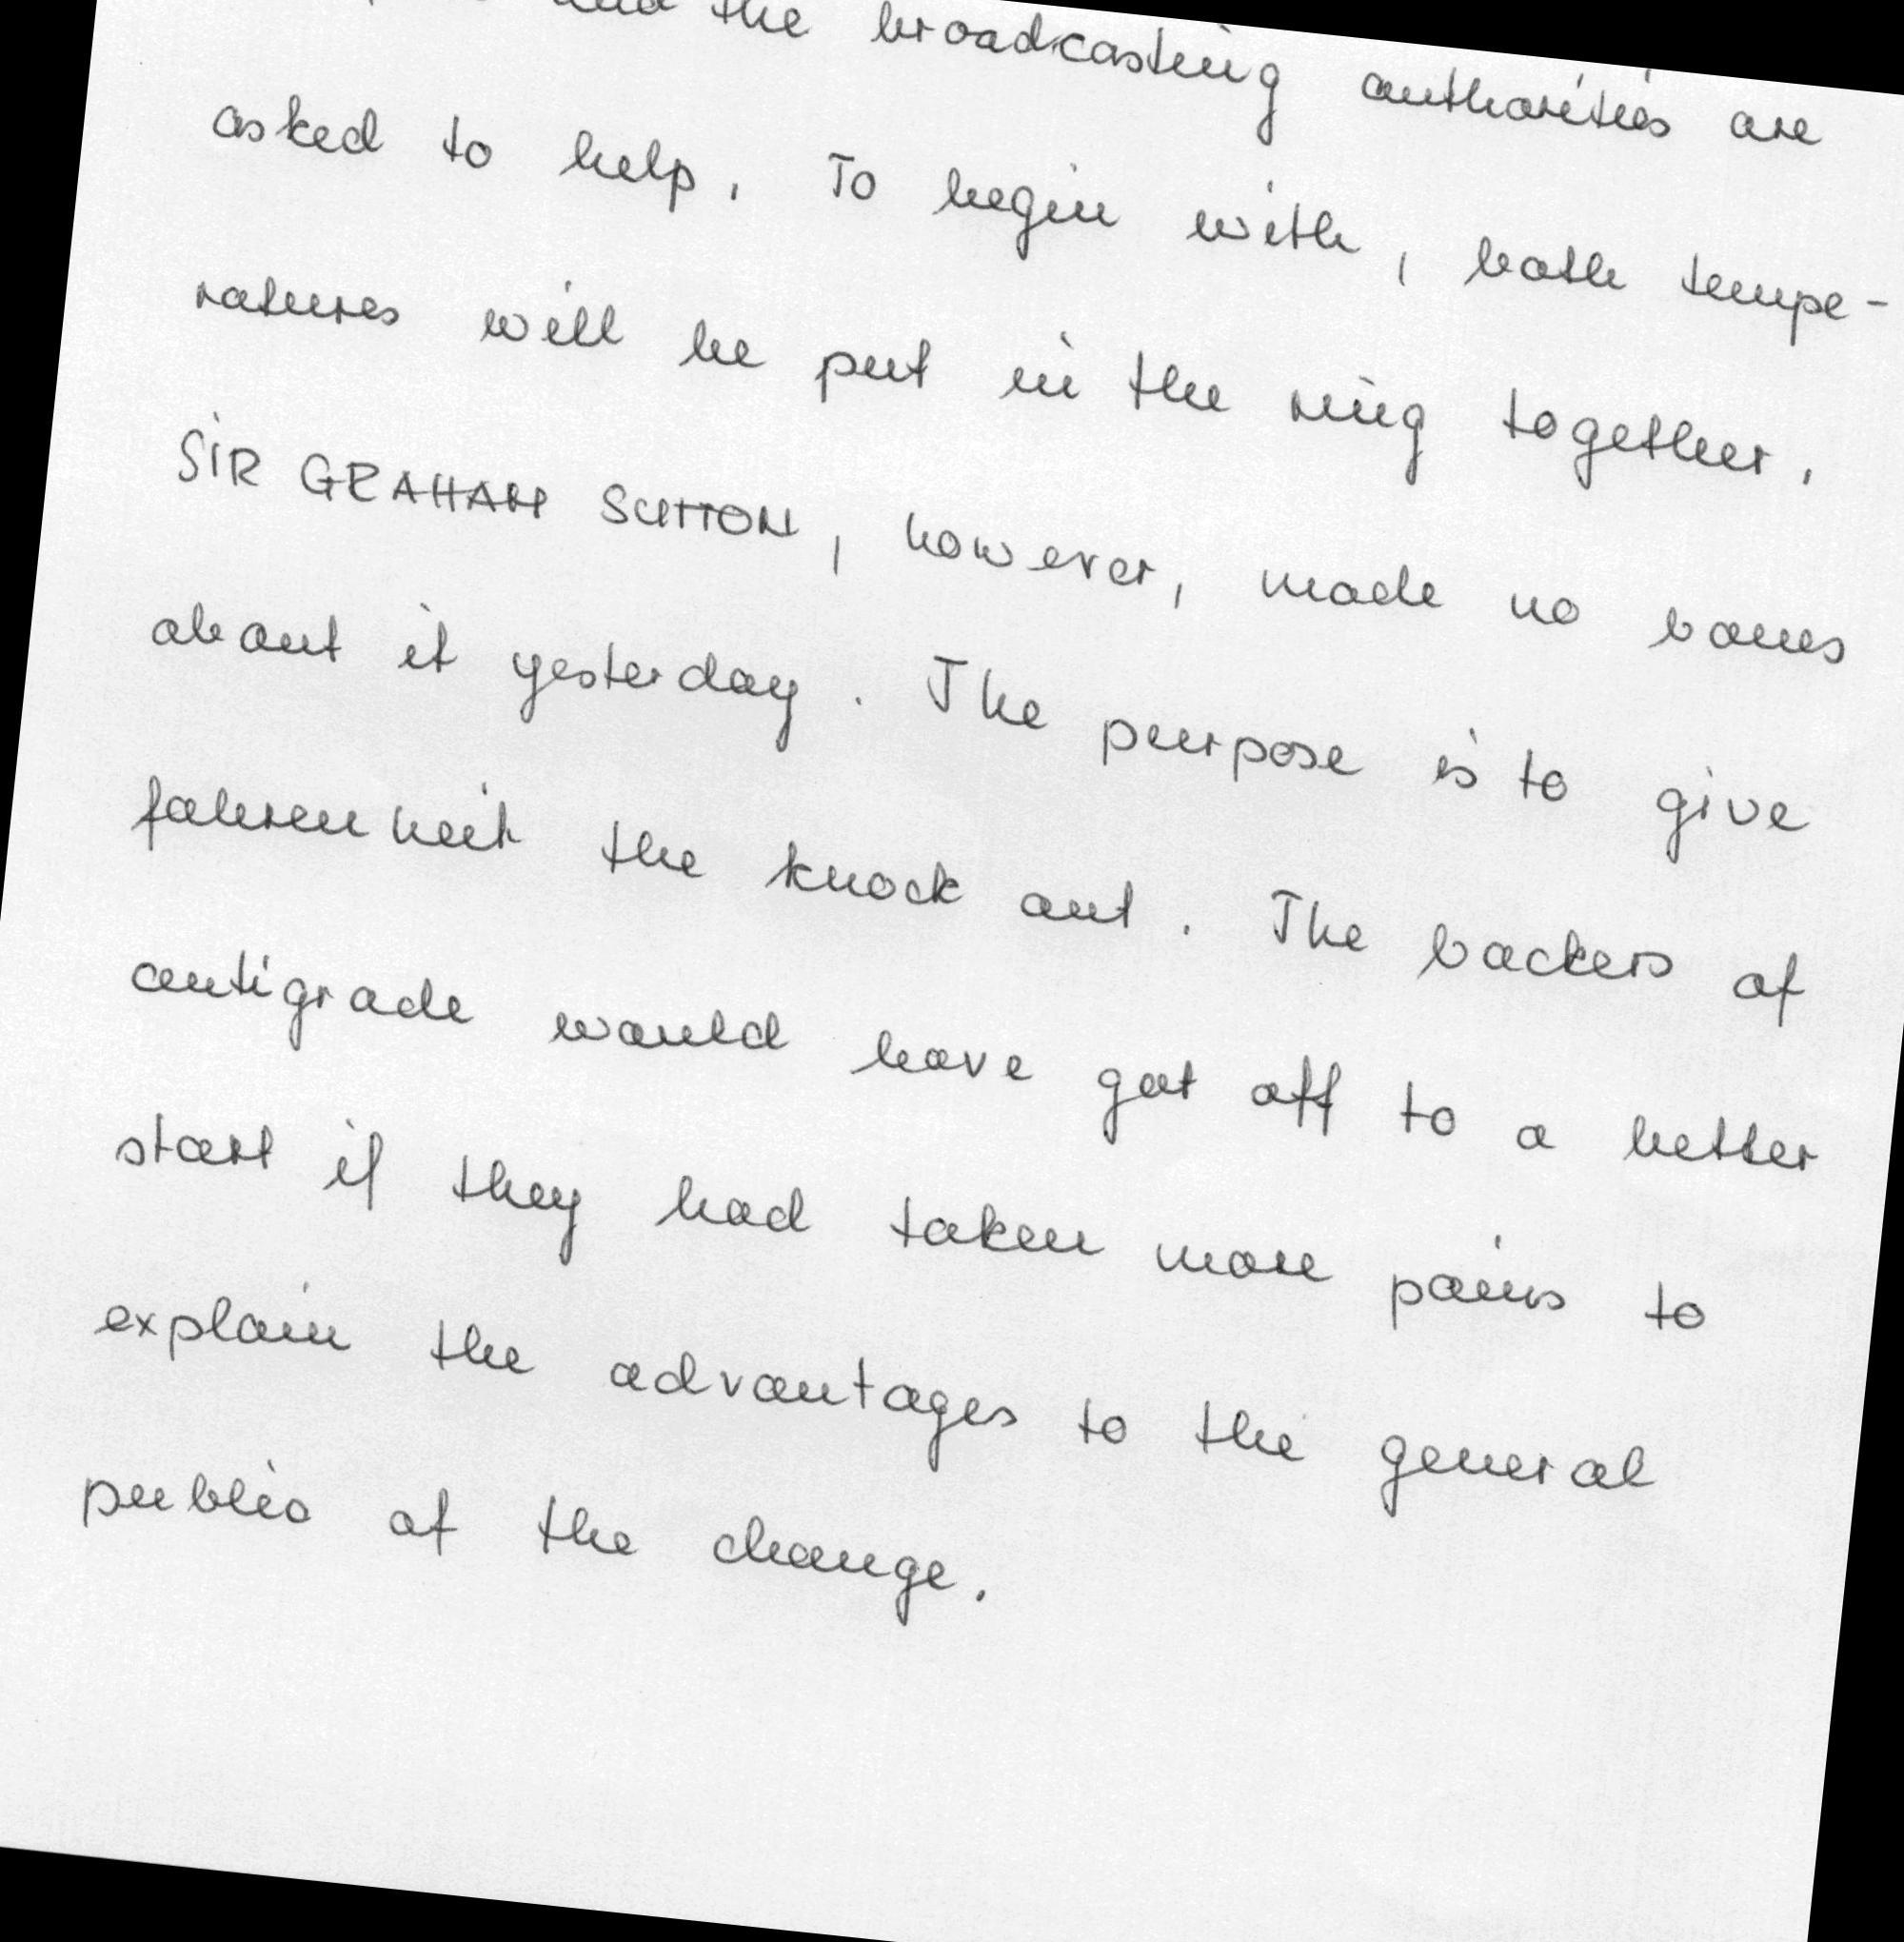 and the broadcasting authorities are
asked to help. To begin with, both tempe-
ratures will be put in the ring together.
SIR GRAHAM SUTTON, however, made no bones
about it yesterday. The purpose is to give
fahrenheit the knock out. The backers of
centigrade would have got off to a better
start if they had taken more pains to
explain the advantages to the general
public of the change.